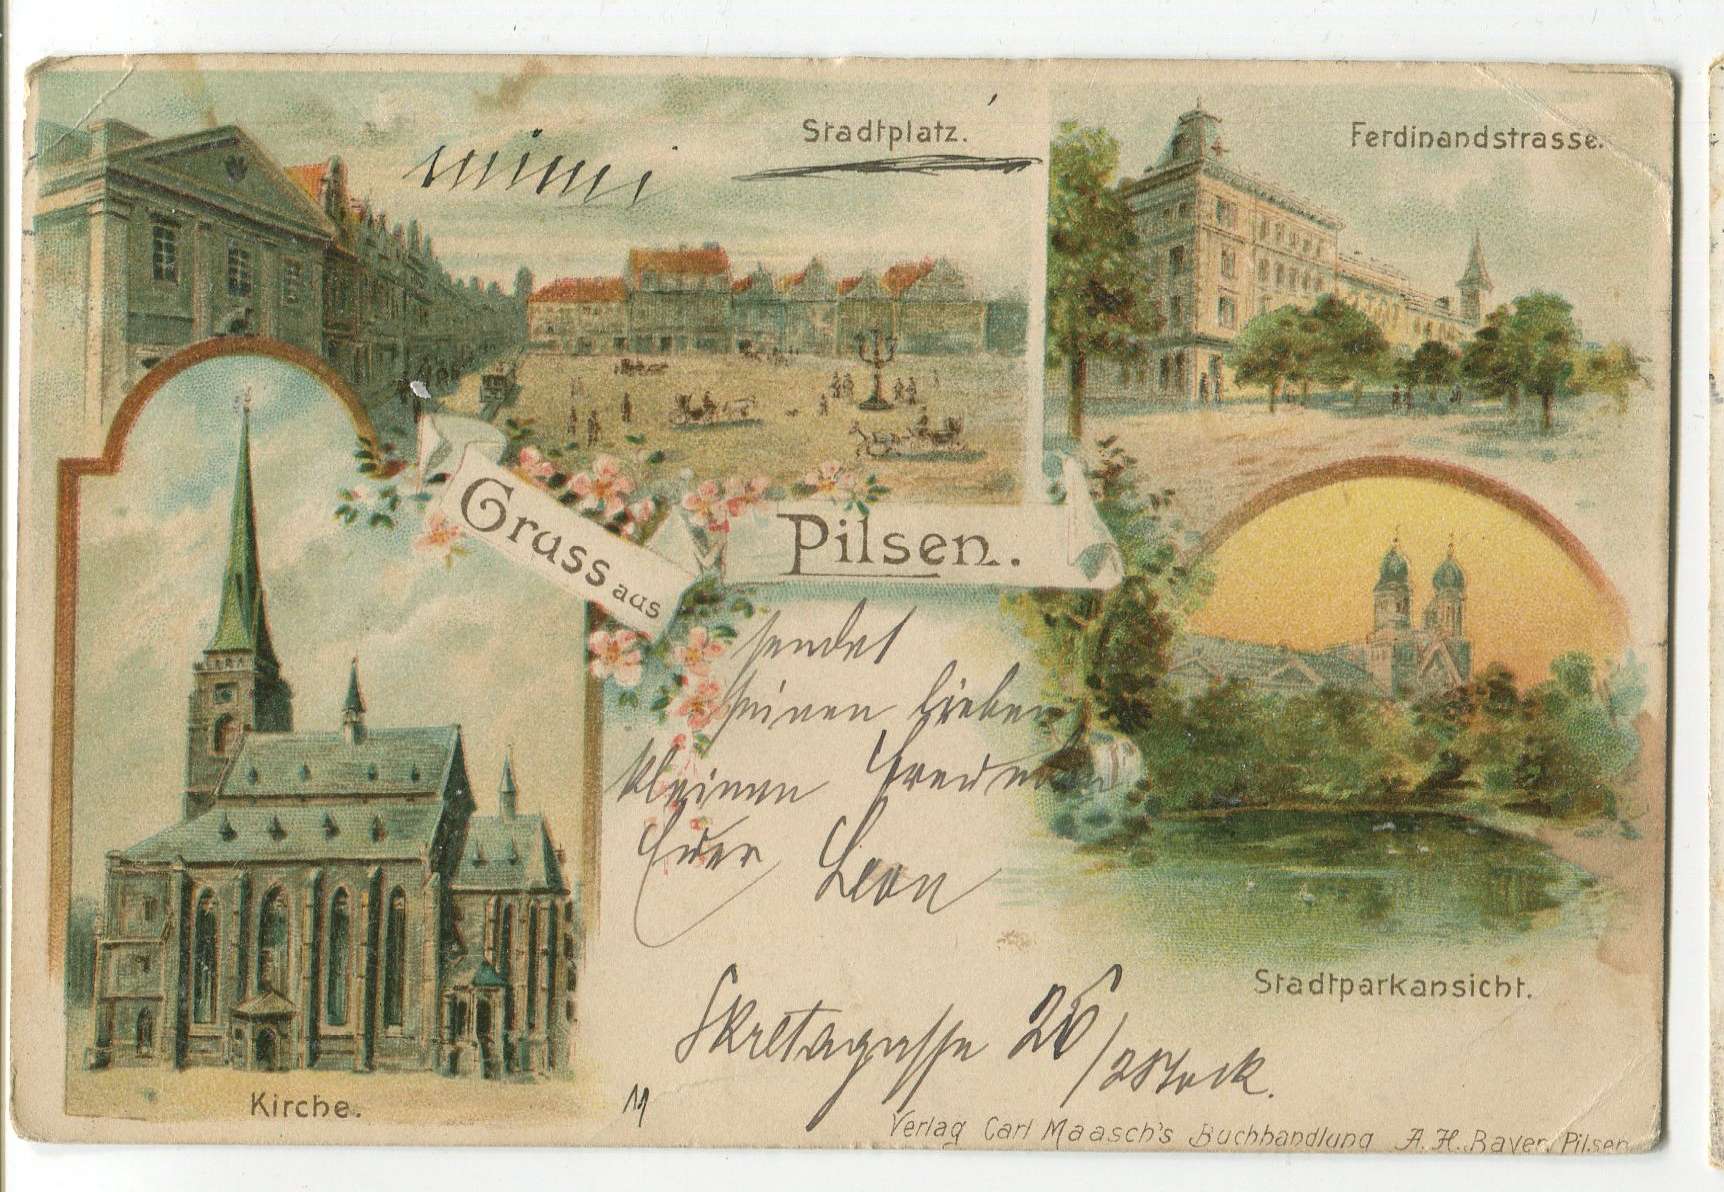 Stadtplatz.
Ferdinandstrasse.
Gruss aus
Pilsen.
sendet
Seinen lieben
kleinen Freunden
Euer Leon
Skretagasse 26/2 Stock.
Stadtparkansicht.
Kirche.
Verlag Carl Maasch's Buchhandlung A.H.Bayer, Pilsen